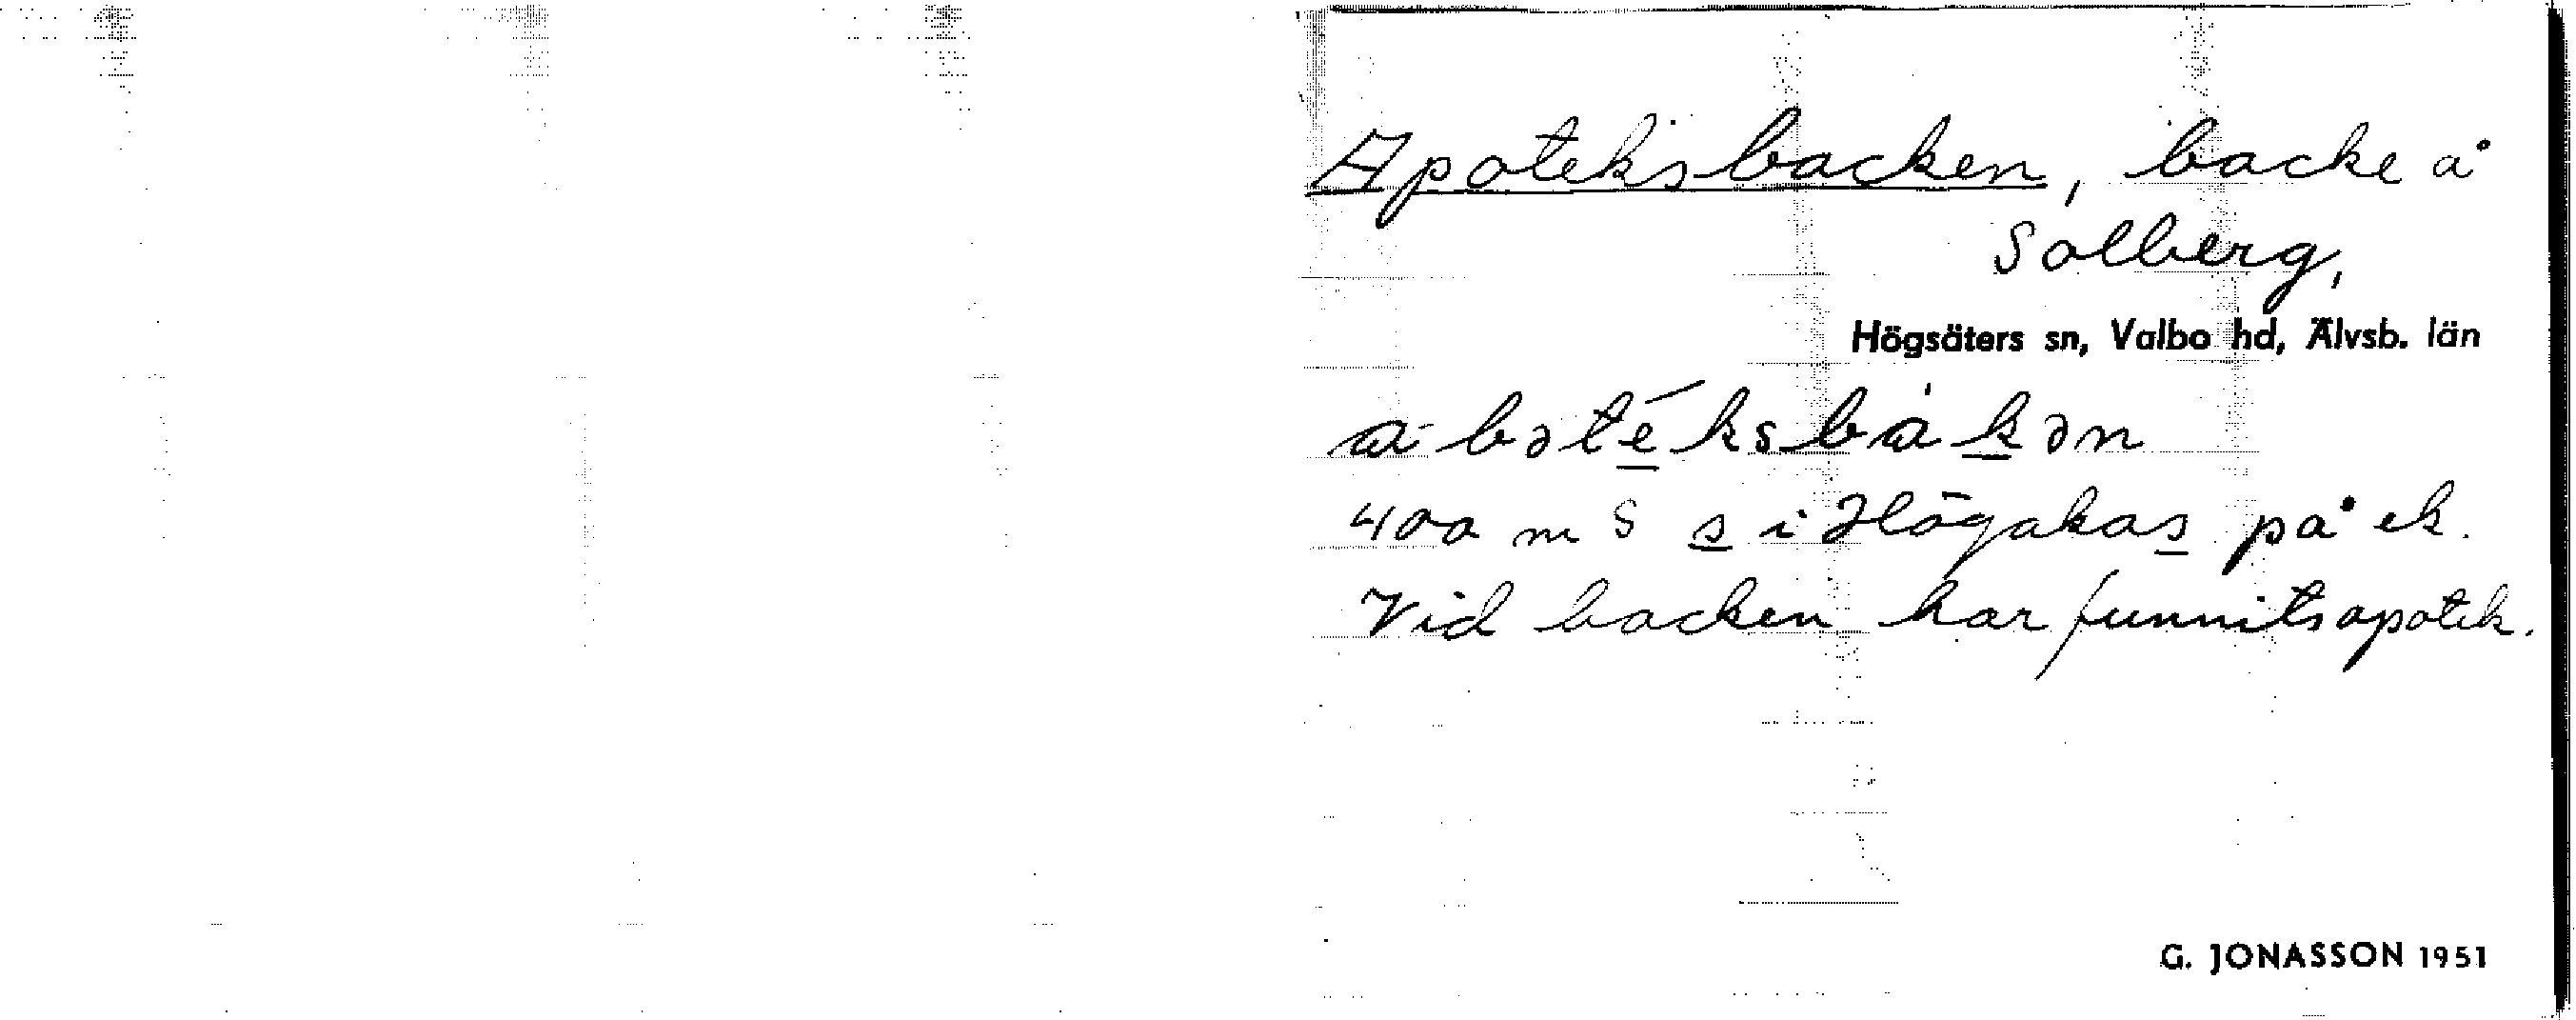 Apoteksbacken, backe å
Solberg,
Högsäters sn, Valbo hd, Älvsb. län
abətéksbakən
400 m S s i Högakas på ek.
Vid backen har funnits apotek.
G. JONASSON 1951